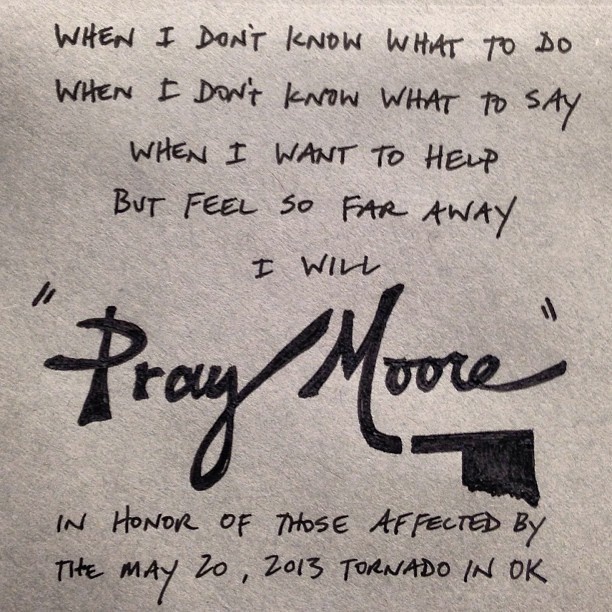 WHEN I DON'T KNOW WHAT TO DO
WHEN I DON'T KNOW WHAT TO SAY
WHEN I WANT TO HELP
BUT FEEL SO FAR AWAY
I WILL
"Pray Moore"
IN HONOR OF THOSE AFFECTED BY
THE MAY 20, 2013 TORNADO IN OK